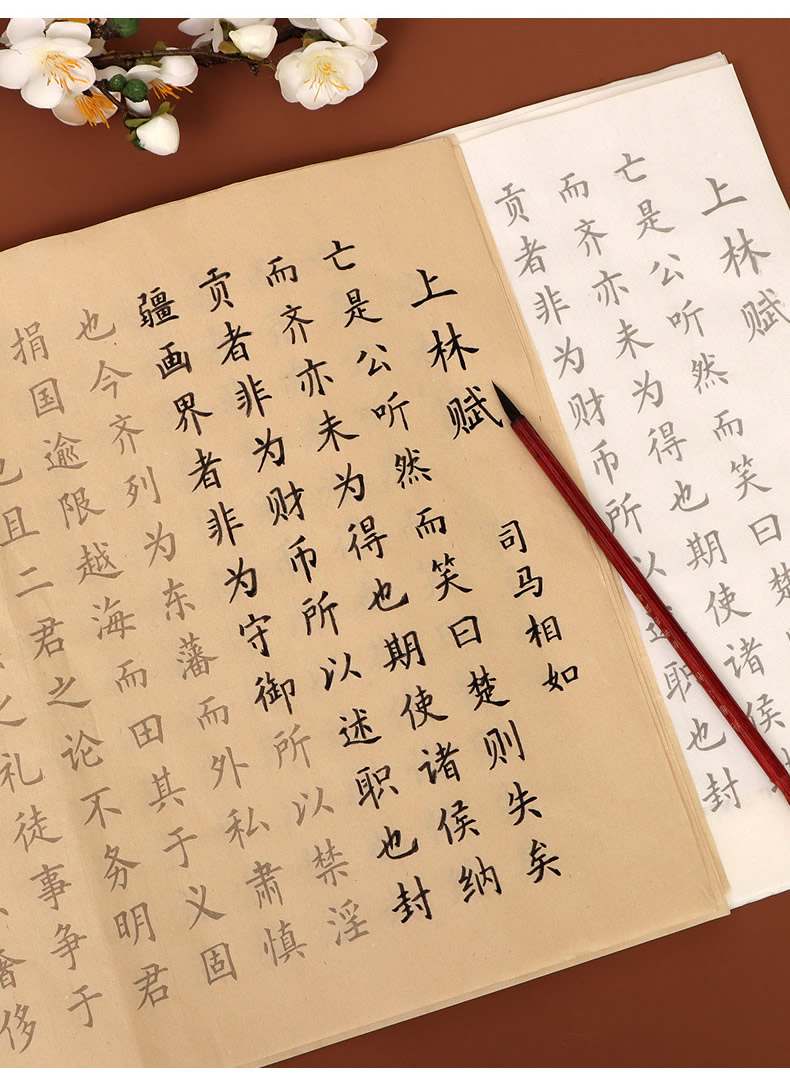 上林赋 司马相如
亡是公听然而笑曰楚则失矣
而齐亦未为得也期使诸侯纳
贡者非为财币所以述职也封
疆画界者非为守御所以禁淫
也今齐列为东藩而外私肃慎
捐国逾限越海而田其于义固
也且二君之论不务明君
之礼徒事争于
奢侈
上林赋
亡是公听然而笑曰楚
而齐亦未为得也期使诸侯
贡者非为财币所以职也封